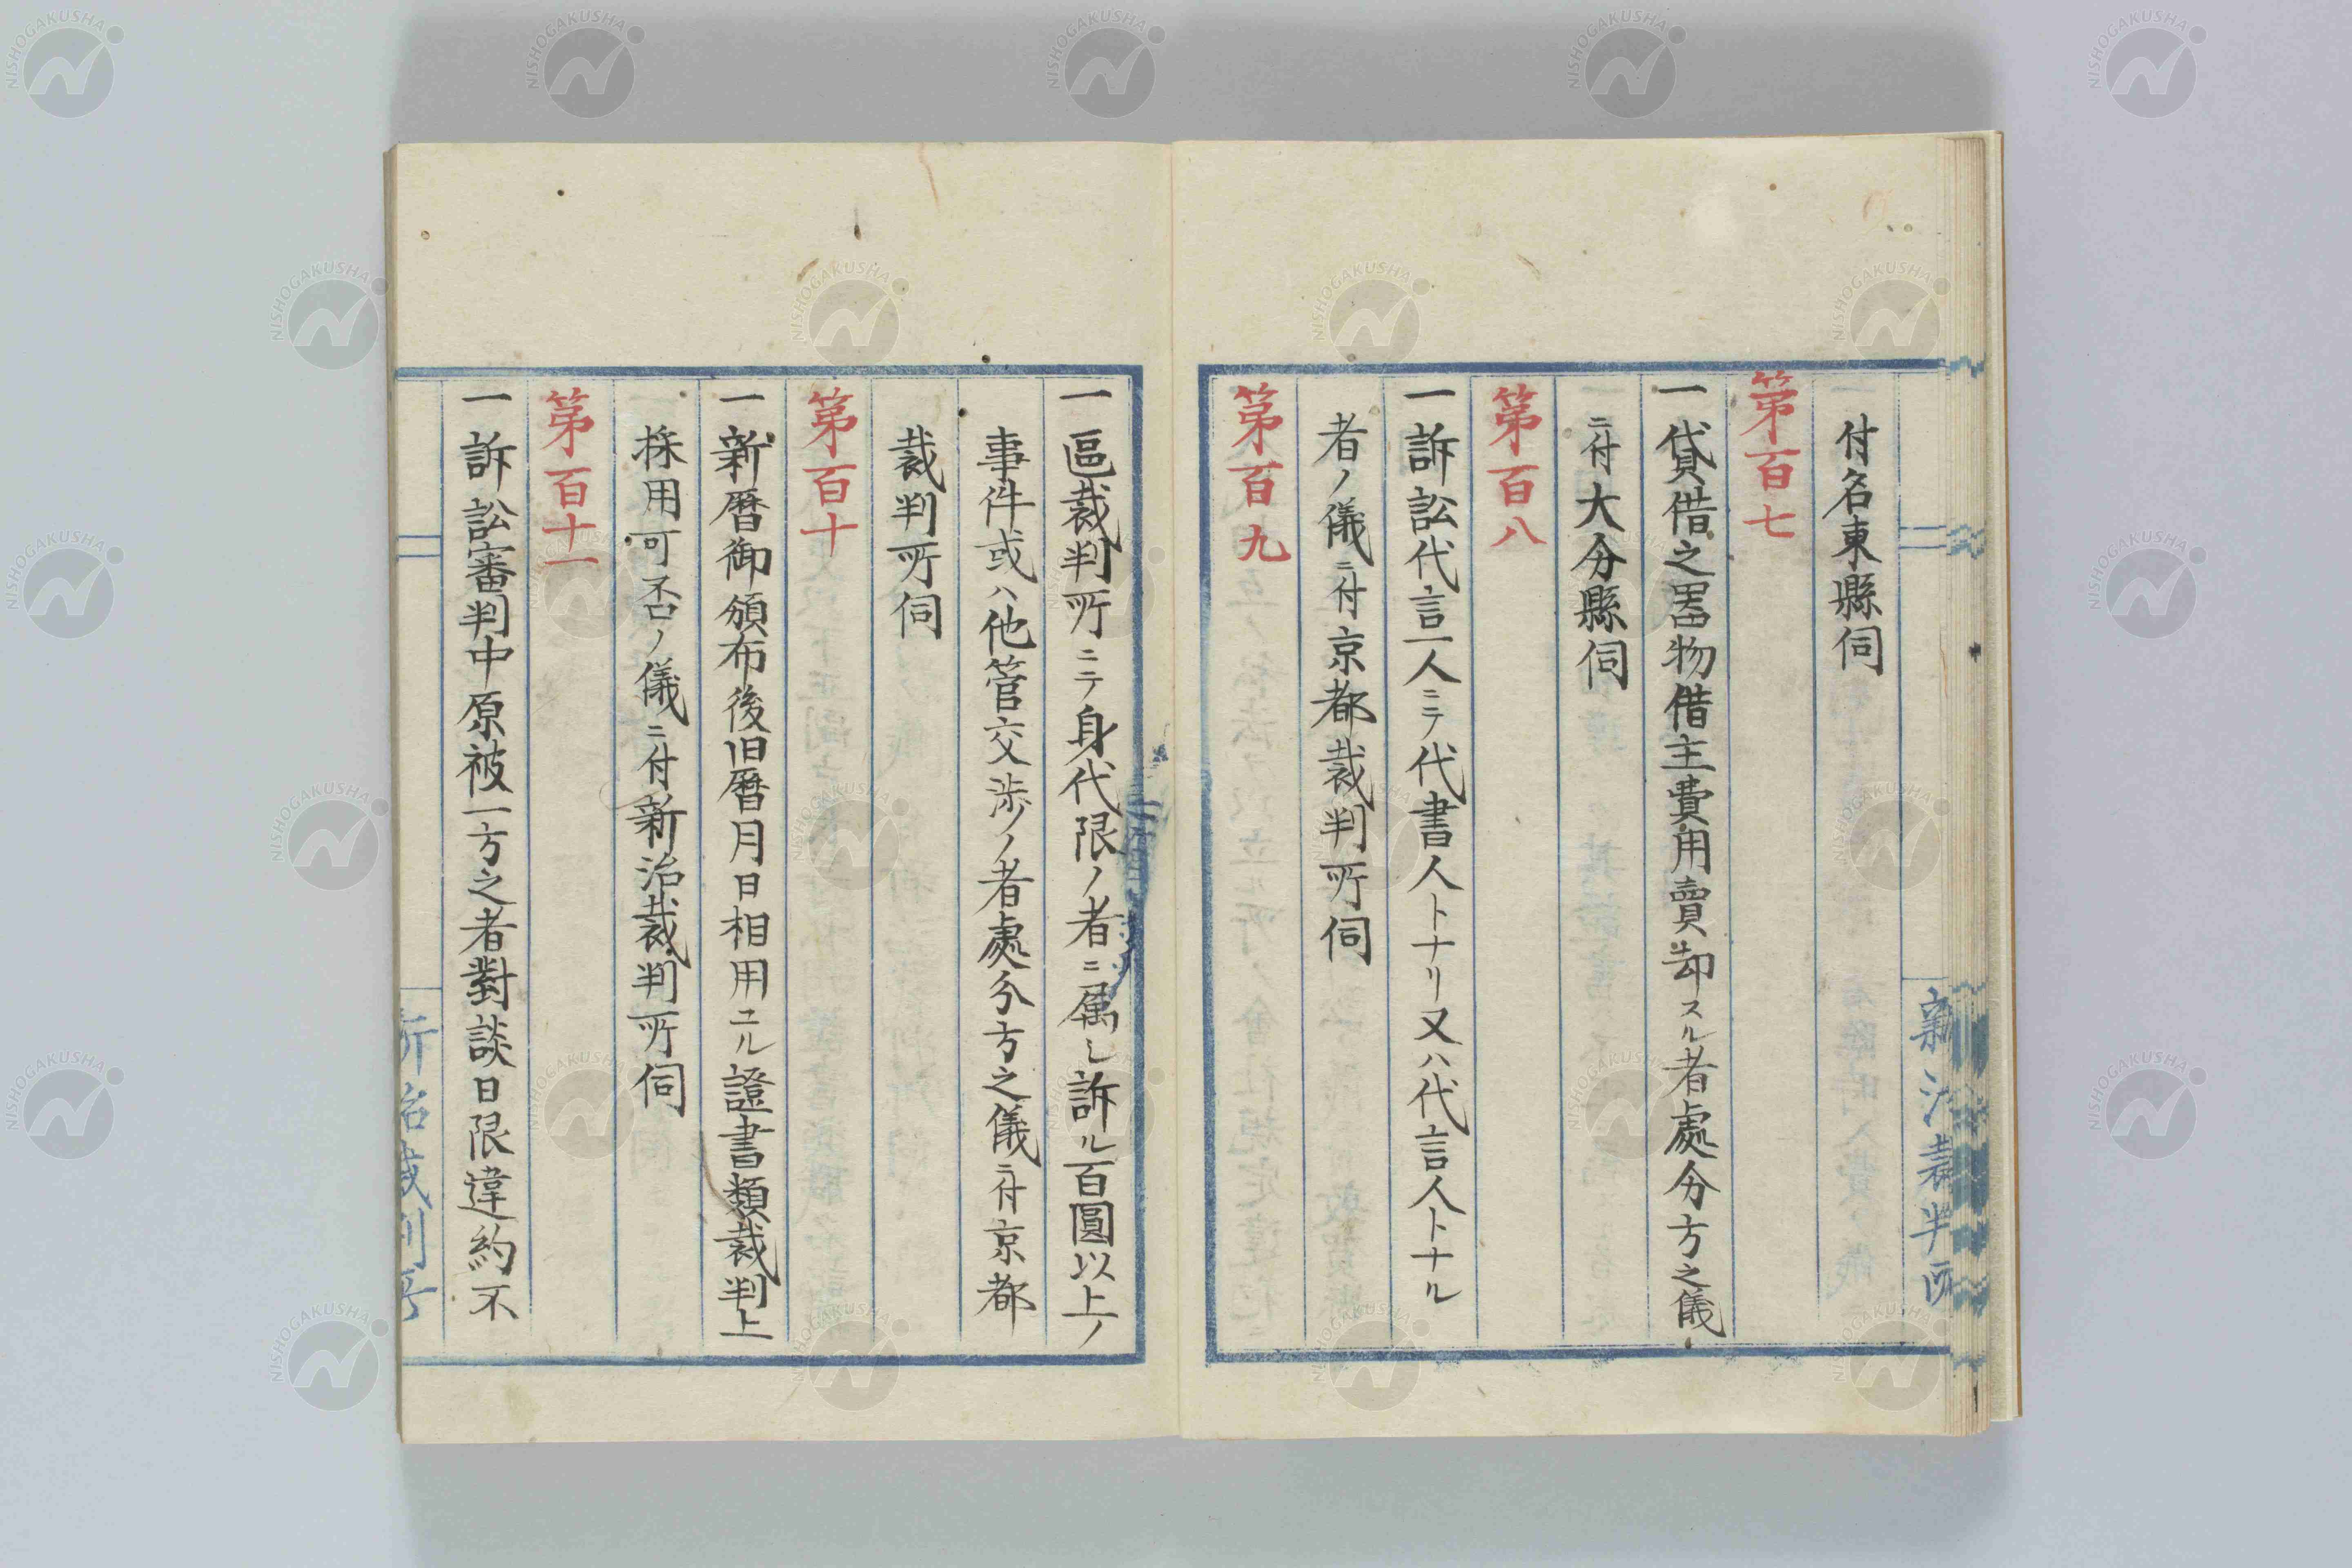 付名東縣伺
第百七
一貸借之噐物借主費用賣却スル者處分方之儀
ニ付大分縣伺
第百八
一訴訟代言一人ニテ代書人トナリ又ハ代言人トナル
者ノ儀ニ付京都裁判所伺
第百九
一區裁判所ニテ身代限ノ者ニ属シ訴ル百圓以上ノ
事件或ハ他管交渉ノ者處分方之儀ニ付京都
裁判所伺
第百十
一新暦御頒布後旧暦月日相用ユル證書類裁判上
採用可否ノ儀ニ付新治裁判所伺
第百十一
一訴訟審判中原被一方之者對談日限違約不
新治裁判所
新治裁判所
NISHOGAKUSHA